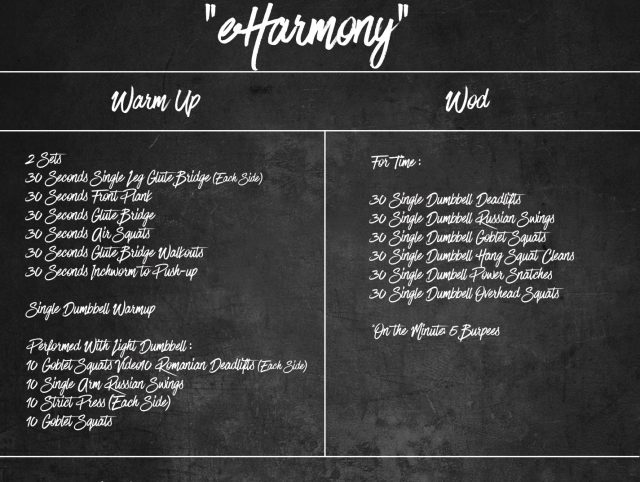 "eHarmony"
Warm Up
2 Sets
30 Seconds Single Leg Glute Bridge (Each Side)
30 Seconds Front Plank
30 Seconds Glute Bridge
30 Seconds Air Squats
30 Seconds Glute Bridge Walkouts
30 Seconds Inchworm to Push-up
Single Dumbbell Warmup
Performed With Light Dumbbell :
10 Goblet Squats Video10 Romanian Deadlifts (Each Side)
10 Single Arm Russian Swings
10 Strict Press (Each Side)
10 Goblet Squats
Wod
For Time :
30 Single Dumbbell Deadlifts
30 Single Dumbbell Russian Swings
30 Single Dumbbell Goblet Squats
30 Single Dumbbell Hang Squat Cleans
30 Single Dumbell Power Snatches
30 Single Dumbbell Overhead Squats
*On the Minute: 5 Burpees